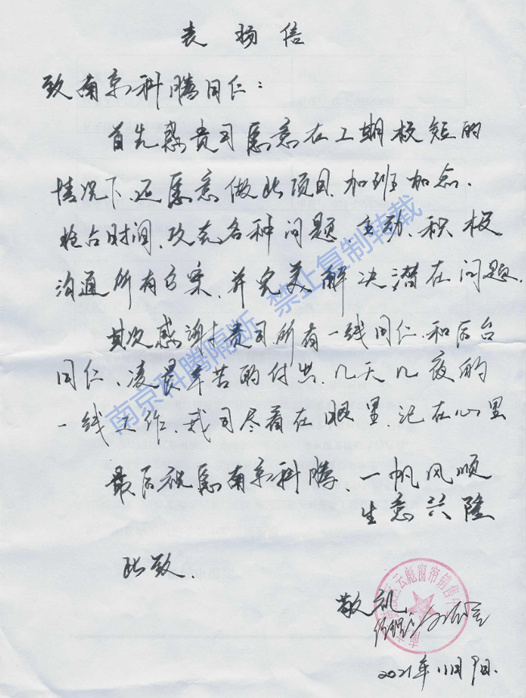 表扬信
致南京科腾同仁：
首先感贵司愿意在工期极短的
情况下，还愿意做此项目，加班加急，
抢占时间，攻克各种问题，主动，积极
沟通所有方案，并完美解决潜在问题。
其次感谢贵司所有一线同仁，和后台
同仁，凌晨辛苦的付出，几天几夜的
一线工作，我司尽看在眼里，记在心里
最后祝愿南京科腾，一帆风顺
生意兴隆
此致，
敬礼
2021年11月9日
南京科腾隔断 禁止复制转载